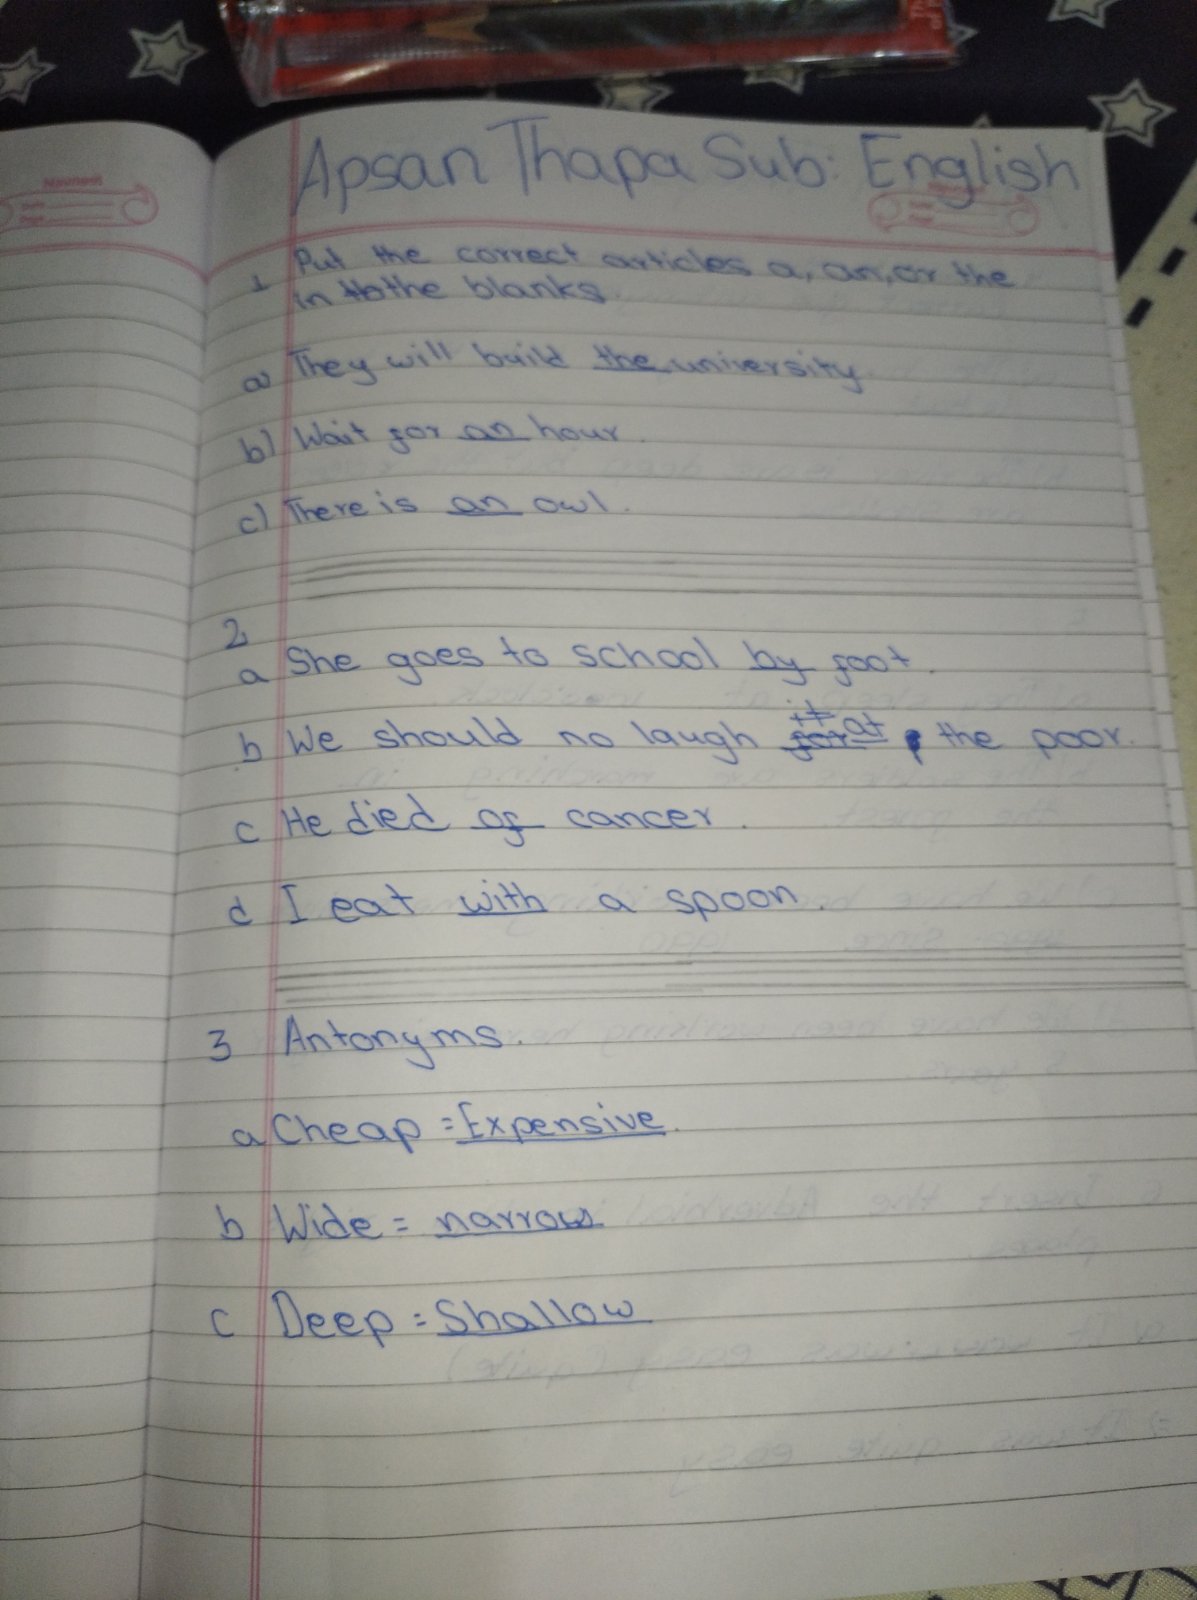 Apsan Thapa Sub: English
1 Put the correct articles a, an, or the
in to the blanks.
a) They will build the university.
b) Wait for an hour.
c) There is an owl.
2
a She goes to school by foot.
b We should no laugh at the poor.
c He died of cancer.
d I eat with a spoon.
3 Antonyms.
a Cheap = Expensive.
b Wide = narrow
c Deep = Shallow